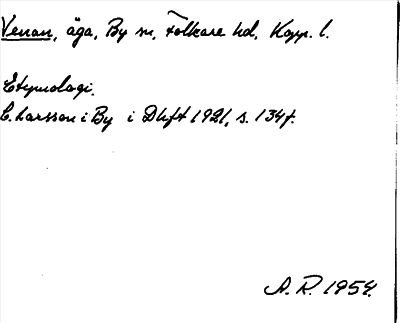 Venan, äga, By sn, Folkare hd, Kopp. l.
Etymologi.
C. Larsson i By i Dhft 1921, s. 134f.
A. R. 1954.